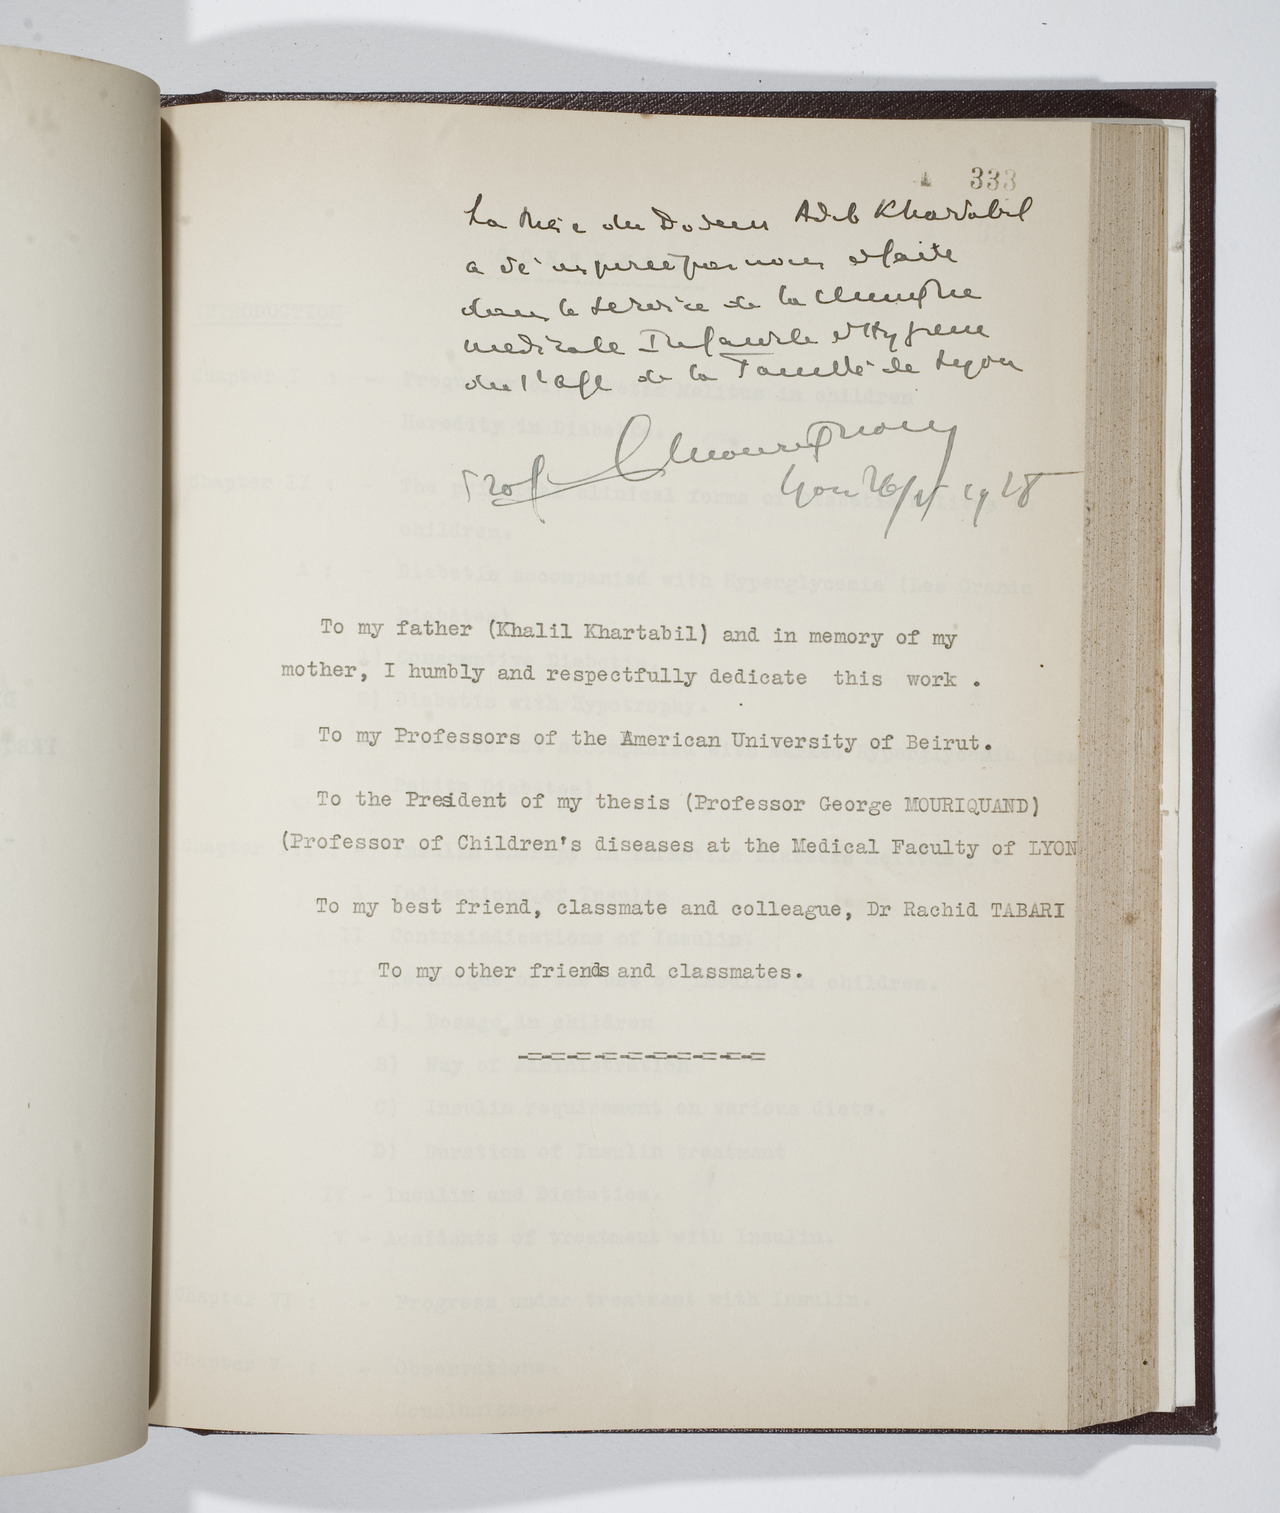 333
La thèse du Docteur Adib Khartabil
a été inspirée par nous et faite
dans le service de la clinique
medicale Infantile et Hygiene
du 1er age de la Faculté de Lyon
Prof Mouriquand
Lyon 1928
To my father (Khalil Khartabil) and in memory of my
mother, I humbly and respectfully dedicate this work .
To my Professors of the American University of Beirut.
To the President of my thesis (Professor George MOURIQUAND)
(Professor of Children's diseases at the Medical Faculty of LYON
To my best friend, classmate and colleague, Dr Rachid TABARI
To my other friends and classmates.